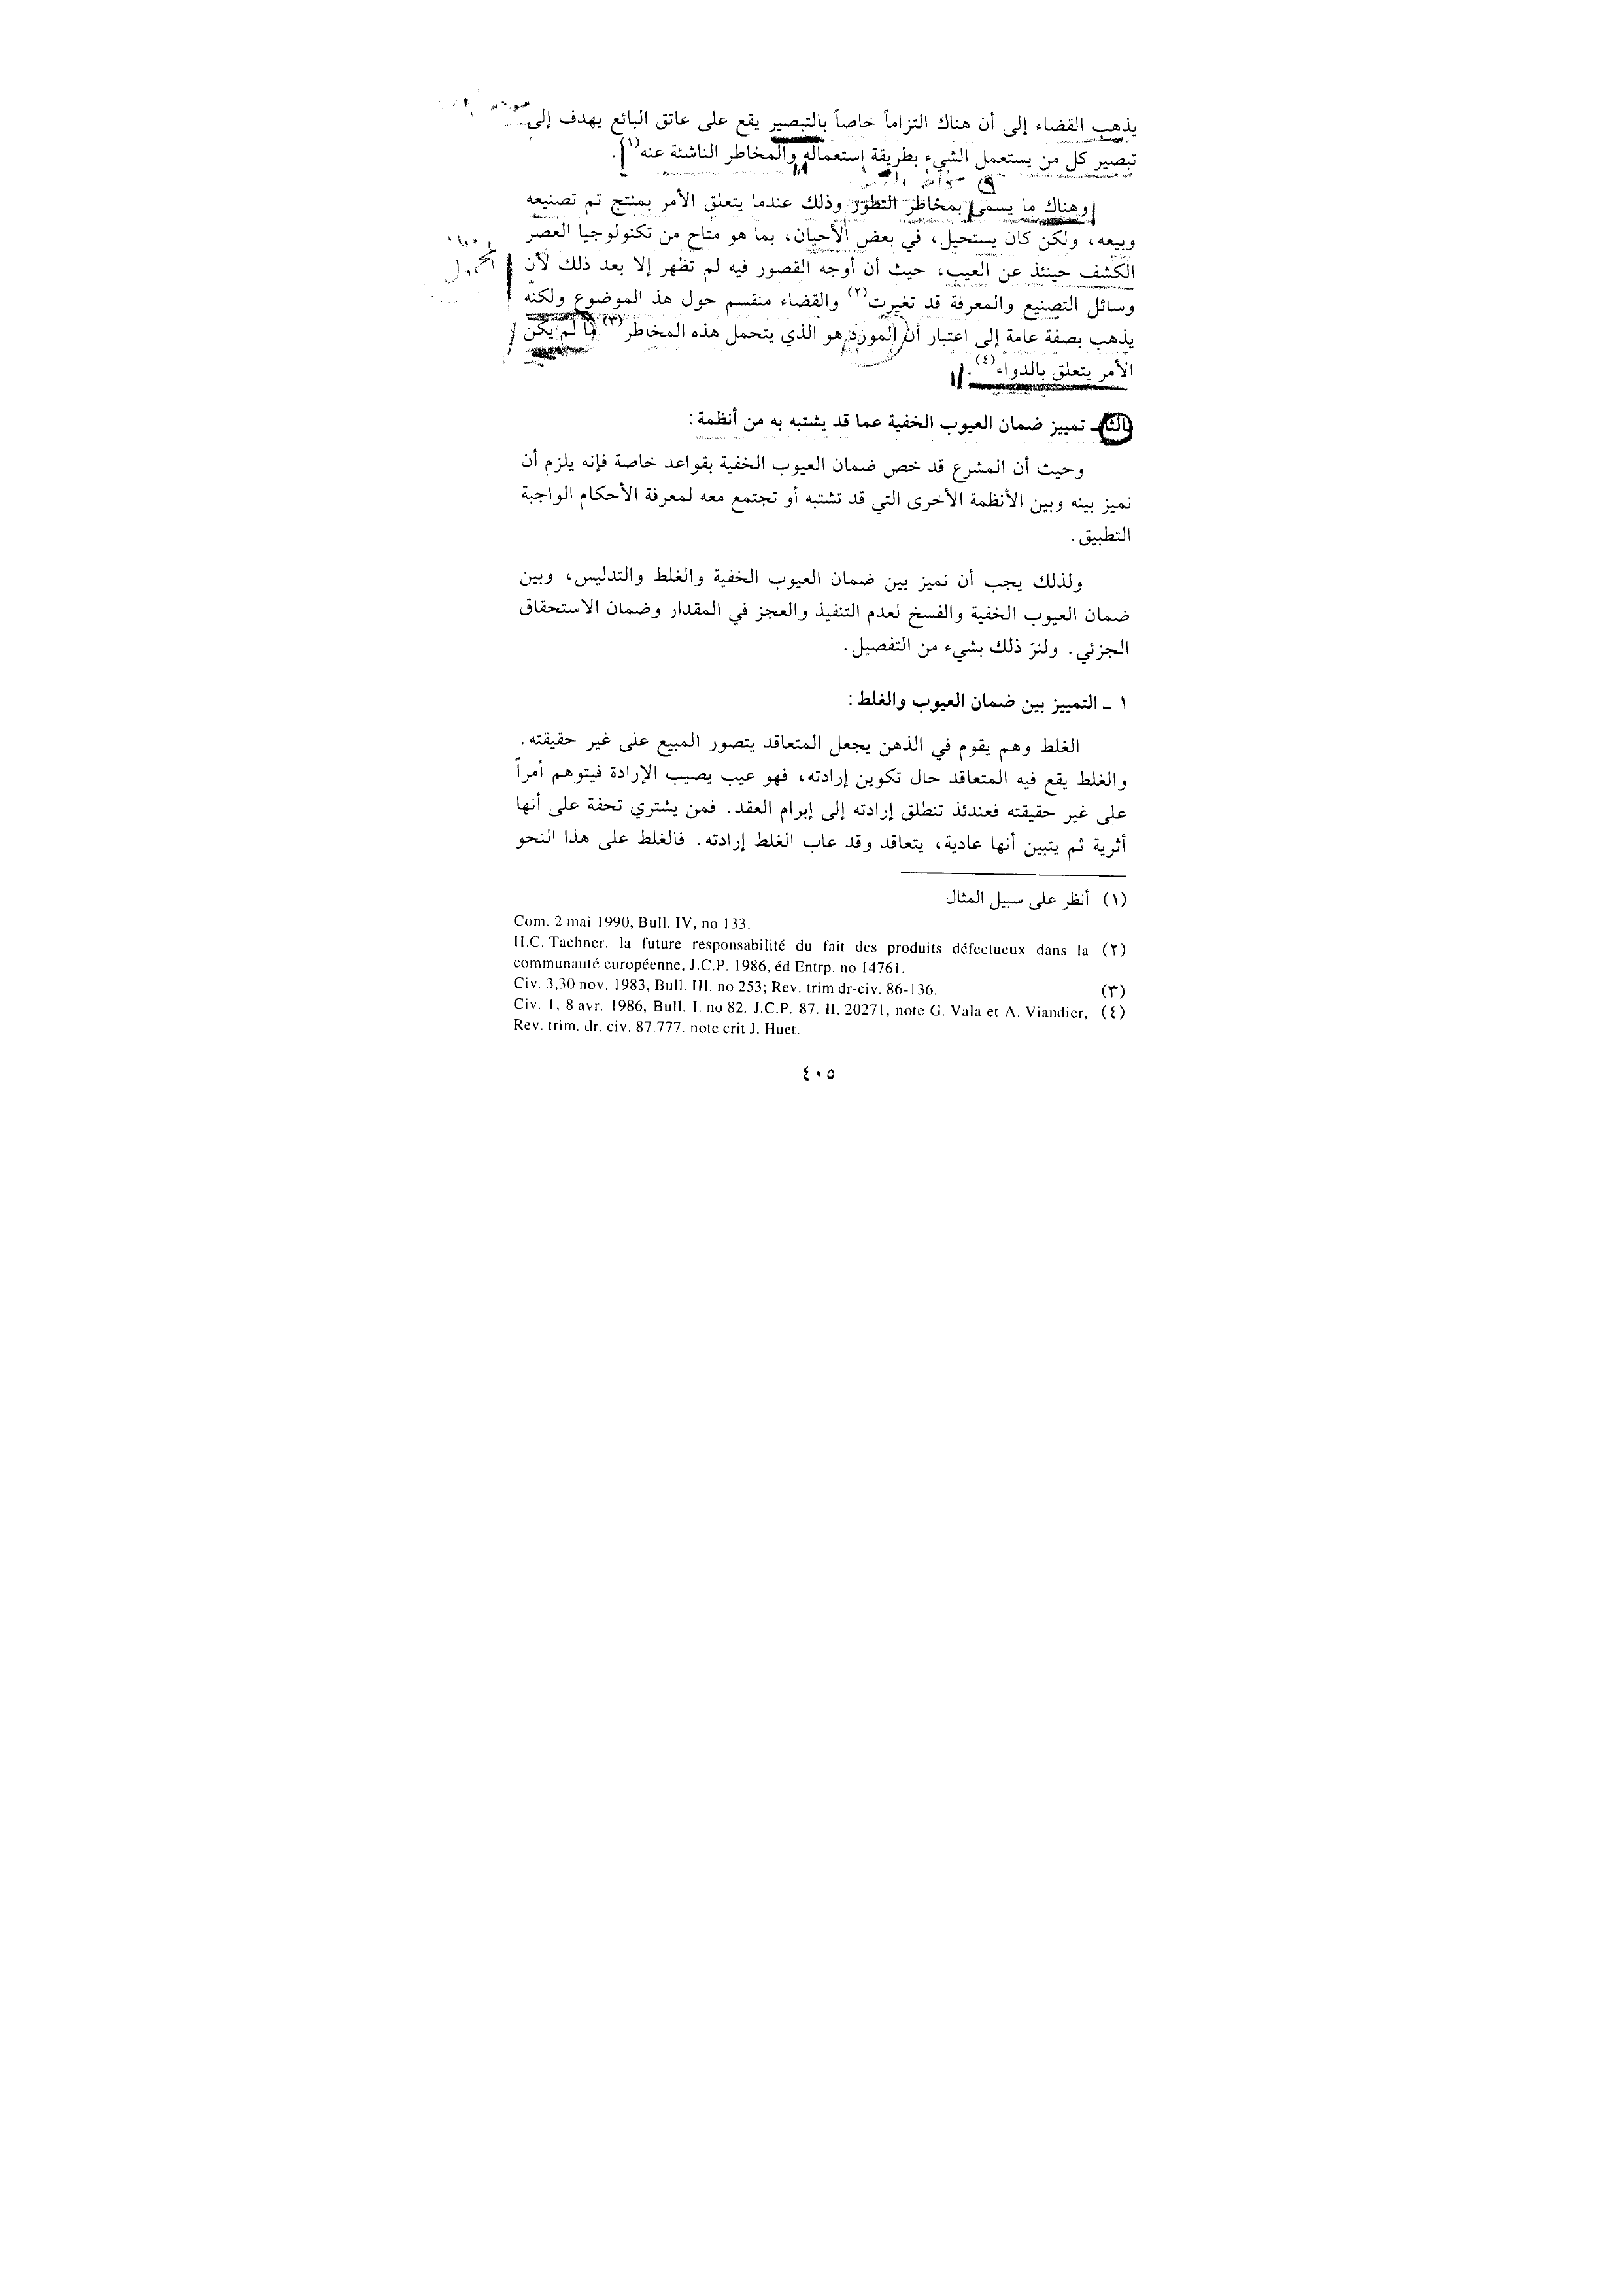 يذهب القضاء إلى أن هناك التزاماً خاصاً بالتبصير يقع على عاتق البائع يهدف إلى
تبصير كل من يستعمل الشيء بطريقة إستعماله والمخاطر الناشئة عنه(١).
وهناك ما يسمى بمخاطر التطور وذلك عندما يتعلق الأمر بمنتج تم تصنيعه
وبيعه، ولكن كان يستحيل، في بعض الأحيان، بما هو متاح من تكنولوجيا العصر
الكشف حينئذ عن العيب، حيث أن أوجه القصور فيه لم تظهر إلا بعد ذلك لأن
وسائل التصنيع والمعرفة قد تغيرت(٢) والقضاء منقسم حول هذ الموضوع ولكنه
يذهب بصفة عامة إلى اعتبار أن المورد هو الذي يتحمل هذه المخاطر(٣) ما لم يكن
الأمر يتعلق بالدواء(٤).
ثالثاً ـ تمييز ضمان العيوب الخفية عما قد يشتبه به من أنظمة:
وحيث أن المشرع قد خص ضمان العيوب الخفية بقواعد خاصة فإنه يلزم أن
نميز بينه وبين الأنظمة الأخرى التي قد تشتبه أو تجتمع معه لمعرفة الأحكام الواجبة
التطبيق.
ولذلك يجب أن نميز بين ضمان العيوب الخفية والغلط والتدليس، وبين
ضمان العيوب الخفية والفسخ لعدم التنفيذ والعجز في المقدار وضمان الاستحقاق
الجزئي. ولنرَ ذلك بشيء من التفصيل.
١ ـ التمييز بين ضمان العيوب والغلط:
الغلط وهم يقوم في الذهن يجعل المتعاقد يتصور المبيع على غير حقيقته.
والغلط يقع فيه المتعاقد حال تكوين إرادته، فهو عيب يصيب الإرادة فيتوهم أمراً
على غير حقيقته فعندئذ تنطلق إرادته إلى إبرام العقد. فمن يشتري تحفة على أنها
أثرية ثم يتبين أنها عادية، يتعاقد وقد عاب الغلط إرادته. فالغلط على هذا النحو
(١) أنظر على سبيل المثال
Com. 2 mai 1990, Bull. IV, no 133.
H.C. Tachner, la future responsabilité du fait des produits défectueux dans la (٢)
communauté européenne, J.C.P. 1986, éd Entrp. no 14761.
Civ. 3,30 nov. 1983, Bull. III. no 253; Rev. trim dr-civ. 86-136. (٣)
Civ. 1, 8 avr. 1986, Bull. I. no 82. J.C.P. 87. II. 20271, note G. Vala et A. Viandier, (٤)
Rev. trim. dr. civ. 87.777. note crit J. Huet.
٤٠٥